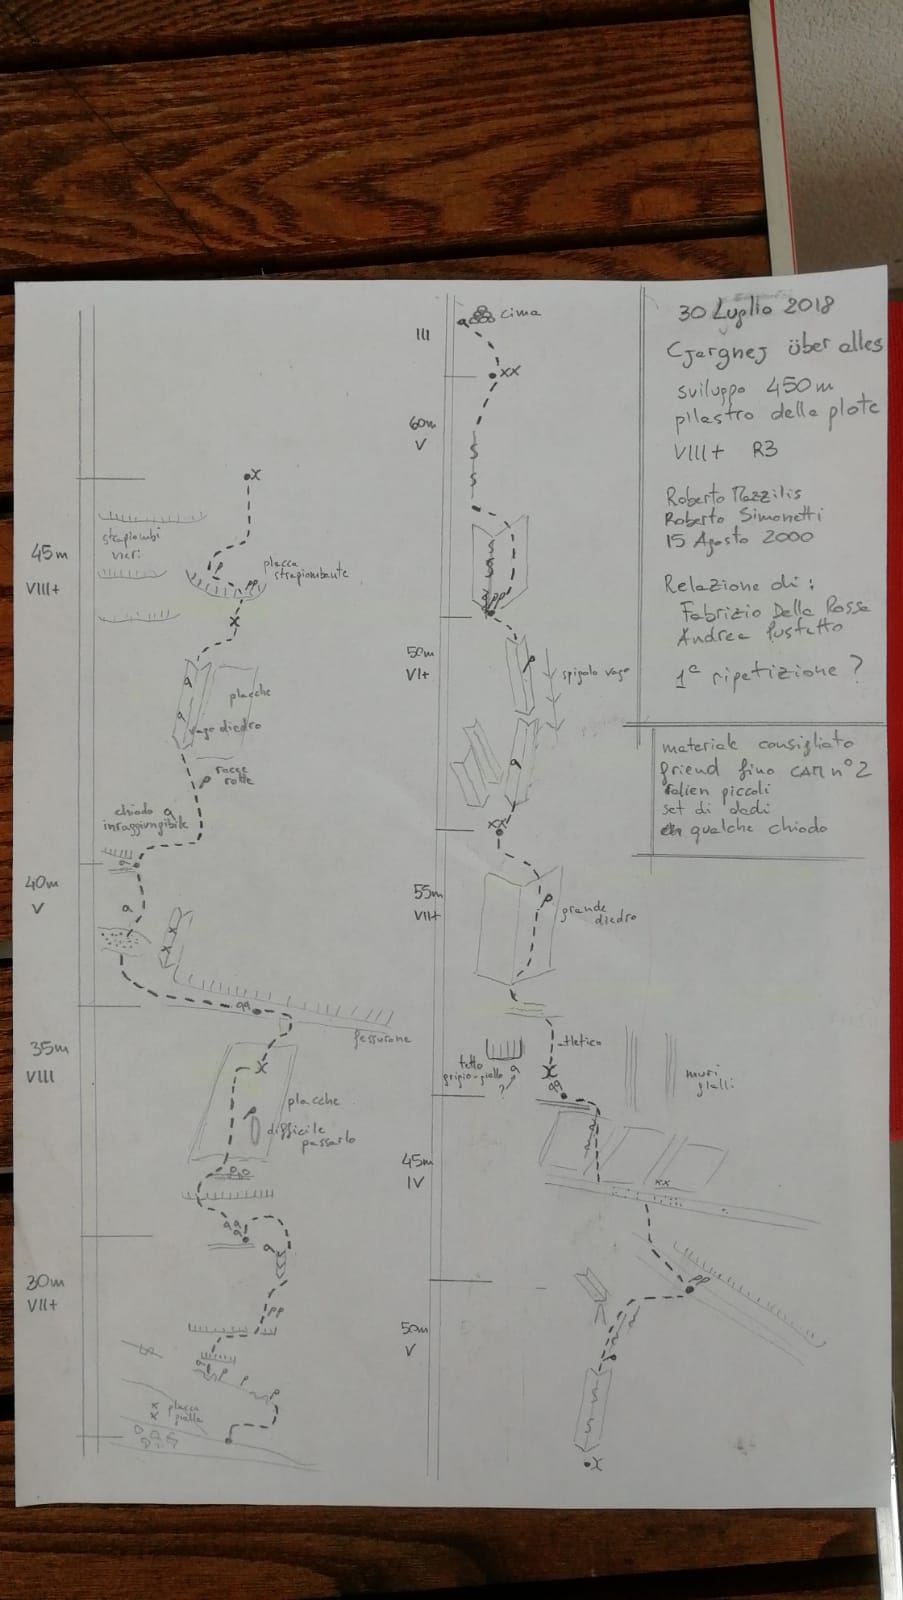 30 Luglio 2018
Cjargnej über alles
sviluppo 450m
pilastro della plote
VIII+ R3
Roberto Mazzilis
Roberto Simonetti
15 Agosto 2000
Relazione di:
Fabrizio Della Rossa
Andrea Fusetto
1ª ripetizione?
materiale consigliato
friend fino CAM n°2
alien piccoli
set di dadi
qualche chiodo
X
strapiombi
neri
45m
VIII+
placca
strapiombante
pp
X
placche
vago diedro
rocce
rotte
chiodo
inraggiungibile
40m
V
X X
fessurone
35m
VIII
X
placche
difficile
passarlo
30m
VII+
pp
X
X
placca
gialla
cima
III
XX
60m
V
50m
VI+
spigolo vago
XX
55m
VII+
grande
diedro
atletico
tetto
grigio-giallo
?
X
muri
gialli
45m
IV
XX
pp
50m
V
X